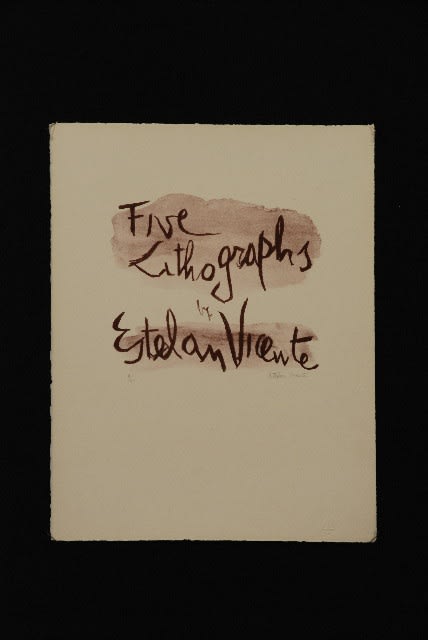 Five
Lithographs
by
Esteban Vicente